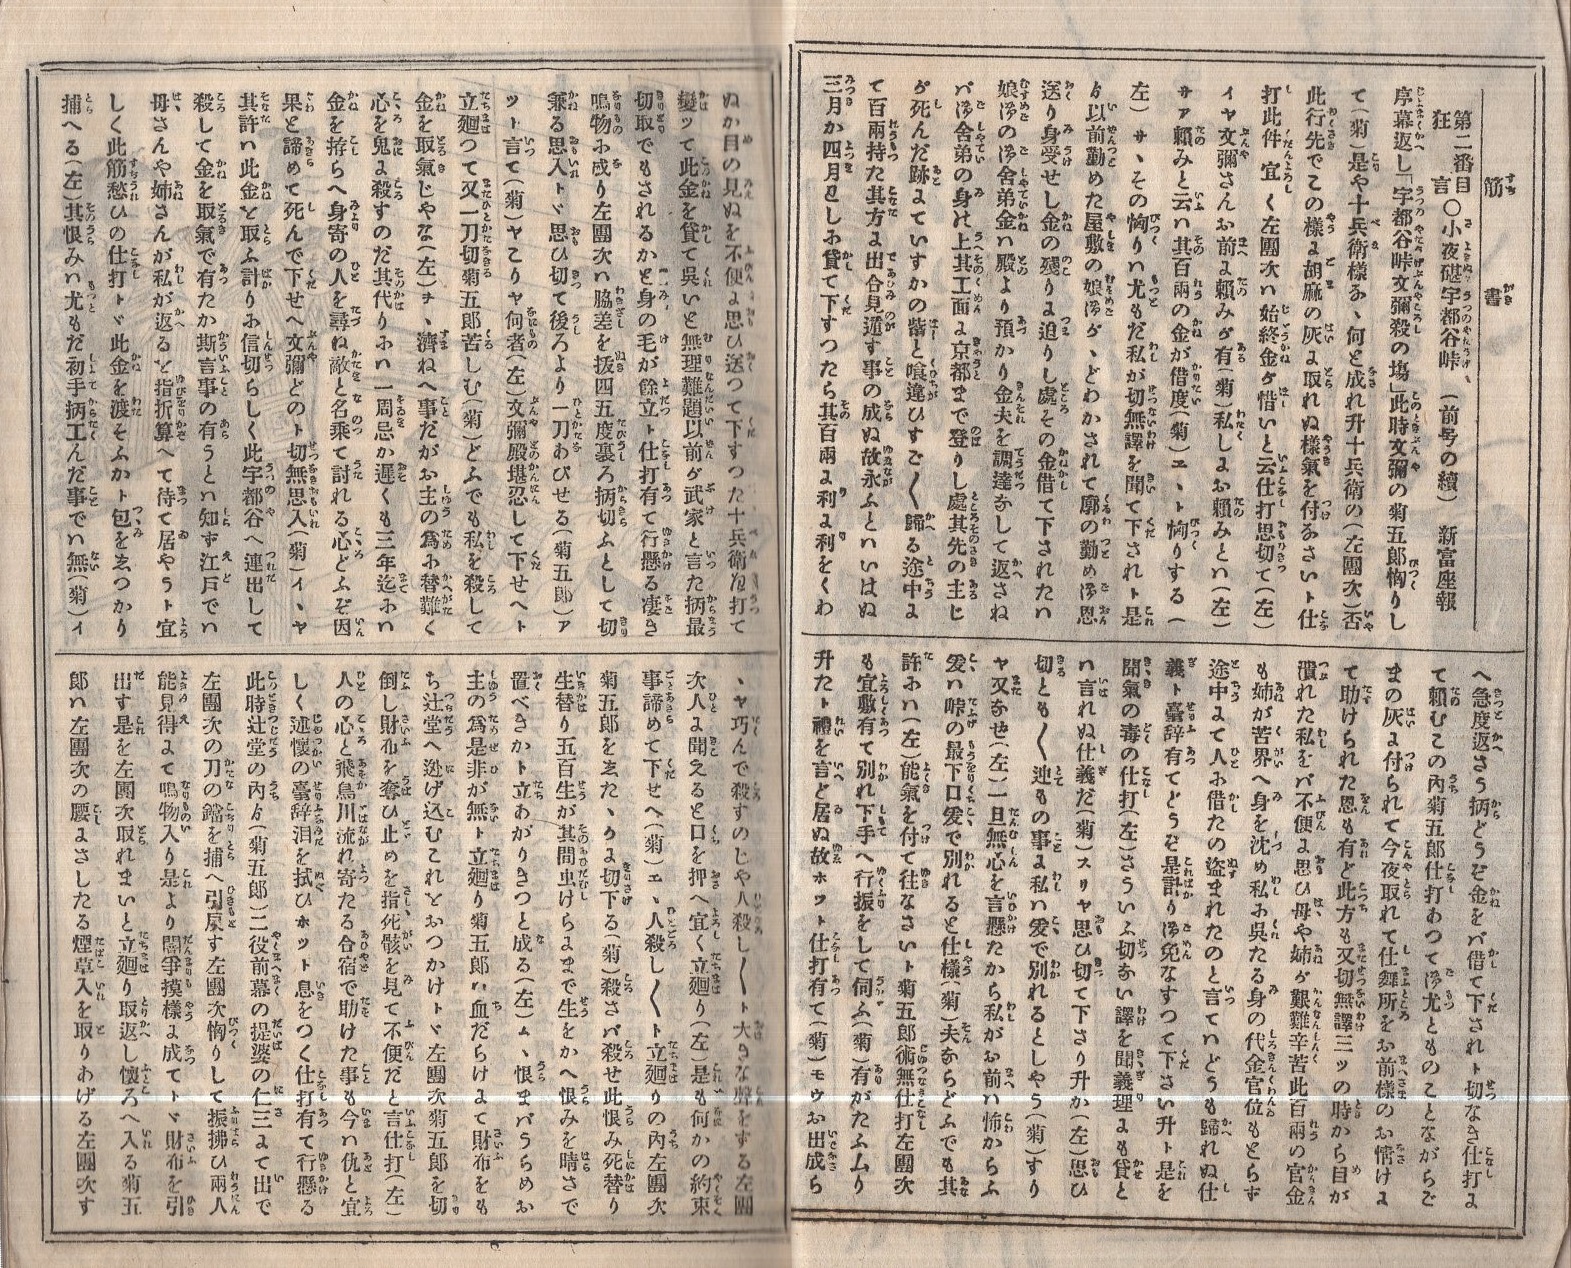 筋書
第二番目狂言〇小夜碪宇都谷峠（前号の續）　新富座報
序幕返し「宇都谷峠文彌殺の塲」此時文彌の菊五郎恟りし
て（菊）是や十兵衛様あゝ何と成れ升十兵衛の（左團次）否
此行先でこの様よ胡麻の灰よ取れぬ様氣を付るさいト仕
打此件宜く左團次ハ始終金が惜いと云仕打思切て（左）
イヤ文彌さんお前よ頼みが有（菊）私しよお頼みとハ（左）
サア頼みと云ハ其百兩の金が借度（菊）エヽト恟りする（
左）サヽその恟りハ尤もだ私が切無譯を聞て下されト是
ゟ以前勤めた屋敷の娘御がゝどわかされて廓の勤め御恩
送り身受せし金の殘りよ迫りし處その金借て下されたい
娘御の御舍弟金ハ殿より預かり金夫を調達なして返さね
バ御舍弟の身の上其工面よ京都まで登りし處其先の主じ
が死んだ跡よていすかの觜と喰違ひすご〱歸る途中よ
て百兩持た其方よ出合見遁す事の成ぬ故永ふとハいはぬ
三月か四月包しお貸て下すつたら其百兩よ利よ利をくわ
へ急度返さう柄どうぞ金をバ借て下されト切なき仕打よ
て頼むこの内菊五郎仕打あつて御尤とものことながらご
まの灰よ付られて今夜取れて仕舞所をお前様のお情けよ
て助けられた恩も有ど此方も又切無譯三ツの時から目が
潰れた私をバ不便よ思ひ母や姉が艱難辛苦此百兩の官金
も姉が苦界へ身を沈め私お呉たる身の代金官位もとらず
途中よて人お借たの盗まれたのと言てハどうも歸れぬ仕
義ト臺辞有てどうぞ是許り御免なすつて下さい升ト是を
聞氣の毒の仕打（左）さういふ切ない譯を聞義理よも貸と
ハ言れぬ仕義だ（菊）スリヤ思ひ切て下さり升か（左）思ひ
切とも〱迚もの事よ私ハ爰で別れるとしやう（菊）すり
ヤ又なせ（左）一旦無心を言懸たから私がお前ハ怖からふ
爰ハ峠の最下口爰で別れると仕様（菊）夫ならどふでも其
許おハ（左）能氣を付て往なさいト菊五郎術無仕打左團次
も宜敷有て別れ下手へ行振をして伺ふ（菊）有がたふムり
升たト禮を言ど居ぬ故ホット仕打有て（菊）モウお出成ら
ぬか目の見ぬを不便よ思ひ送つて下すつた十兵衛包打て
變ッて此金を貸て呉いと無理難題以前が武家と言た柄最
切取でもされるかと身の毛が餘立ト仕打有て行懸る凄き
鳴物お成り左團次ハ脇差を抜四五度裏ろ柄切ふとして切
兼る思入トヾ思ひ切て後ろより一刀あびせる（菊五郎）ア
ット言て（菊）ヤこりヤ何者（左）文彌殿堪忍して下せへト
立廻つて又一刀切菊五郎苦しむ（菊）どふでも私を殺して
金を取氣じやな（左）チヽ濟ねへ事だがお主の爲お替難く
心を鬼よ殺すのだ其代りおハ一周忌か遲くも三年迄おハ
金を拵らへ身寄の人を尋ね敵と名乘て討れる心どふぞ因
果と諦めて死んで下せへ文彌どのト切無思入（菊）イヽヤ
其許ハ此金と取ふ計りお信切らしく此宇都谷へ連出して
殺して金を取氣で有たか斯言事の有うとハ知ず江戸でハ
母さんや姉さんが私が返ると指折算へて待て居やうト宜
しく此筋愁ひの仕打トヾ此金を渡そふかト包をゑつかり
捕へる（左）其恨みハ尤もだ初手柄工んだ事でハ無（菊）イ
ヽヤ巧んで殺すのじや人殺し〱ト大きな聲をする左團
次人よ聞えると口を押へ宜く立廻り（左）是も何かの約束
事諦めて下せへ（菊）エヽ人殺し〱ト立廻りの内左團次
菊五郎をゑたゝかよ切下る（菊）殺さバ殺せ此恨み死替り
生替り五百生が其間虫けらよまで生をかへ恨みを晴さで
置べきかト立あがりきつと成る（左）ムヽ恨まバうらめお
主の爲是非が無ト立廻り菊五郎ハ血だらけよて財布をも
ち辻堂へ逃げ込むこれとおつかけトヾ左團次菊五郎を切
倒し財布を奪ひ止めを指死骸を見て不便だと言仕打（左）
人の心と飛鳥川流れ寄たる合宿で助けた事も今ハ仇と宜
しく述懐の臺辞泪を拭ひホット息をつく仕打有て行懸る
此時辻堂の内ゟ（菊五郎）二役前幕の提婆の仁三よて出で
左團次の刀の鐺を捕へ引戻す左團次恟りして振拂ひ兩人
能見得よて鳴物入り是より闇爭摸様よ成てトヾ財布を引
出す是を左團次取れまいと立廻り取返し懷ろへ入る菊五
郎ハ左團次の腰よさしたる煙草入を取りあげる左團次す